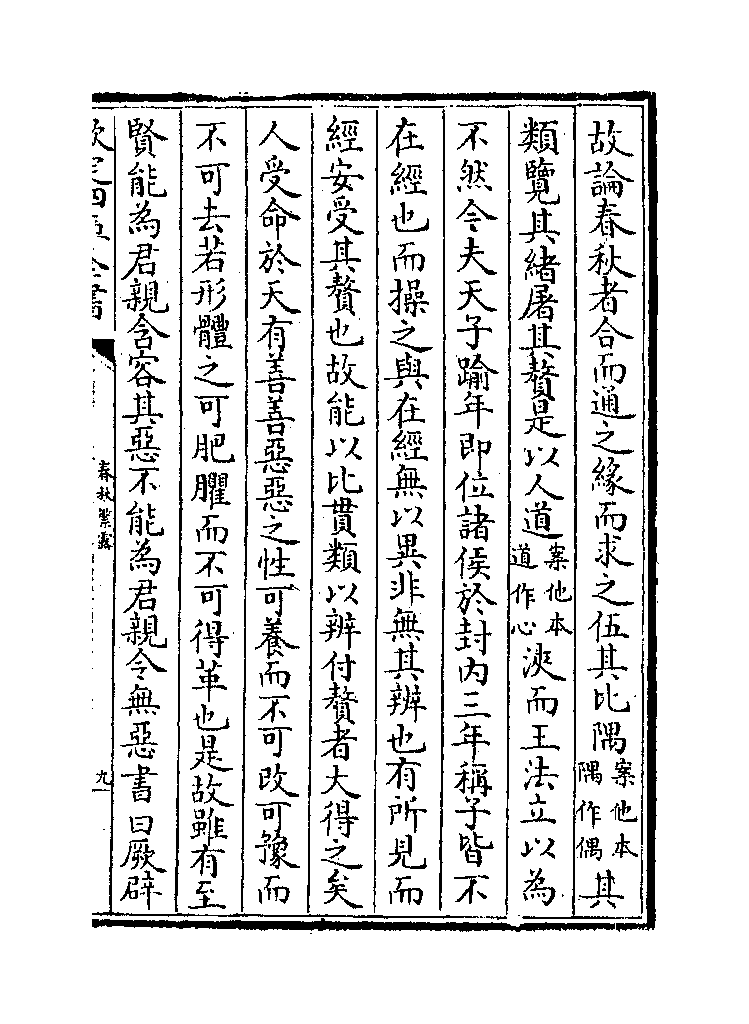 故論春秋者合而通之緣而求之伍其比隅案他本隅作偶其
類覽其緒屠其贅是以人道案他本道作心浹而王法立以為
不然今夫天子踰年即位諸侯於封內三年稱子皆不
在經也而操之與在經無以異非無其辨也有所見而
經安受其贅也故能以比貫類以辨付贅者大得之矣
人受命於天有善善惡惡之性可養而不可改可豫而
不可去若形體之可肥臞而不可得革也是故雖有至
賢能為君親含容其惡不能為君親令無惡書曰厥辟
欽定四庫全書
春秋繁露
九